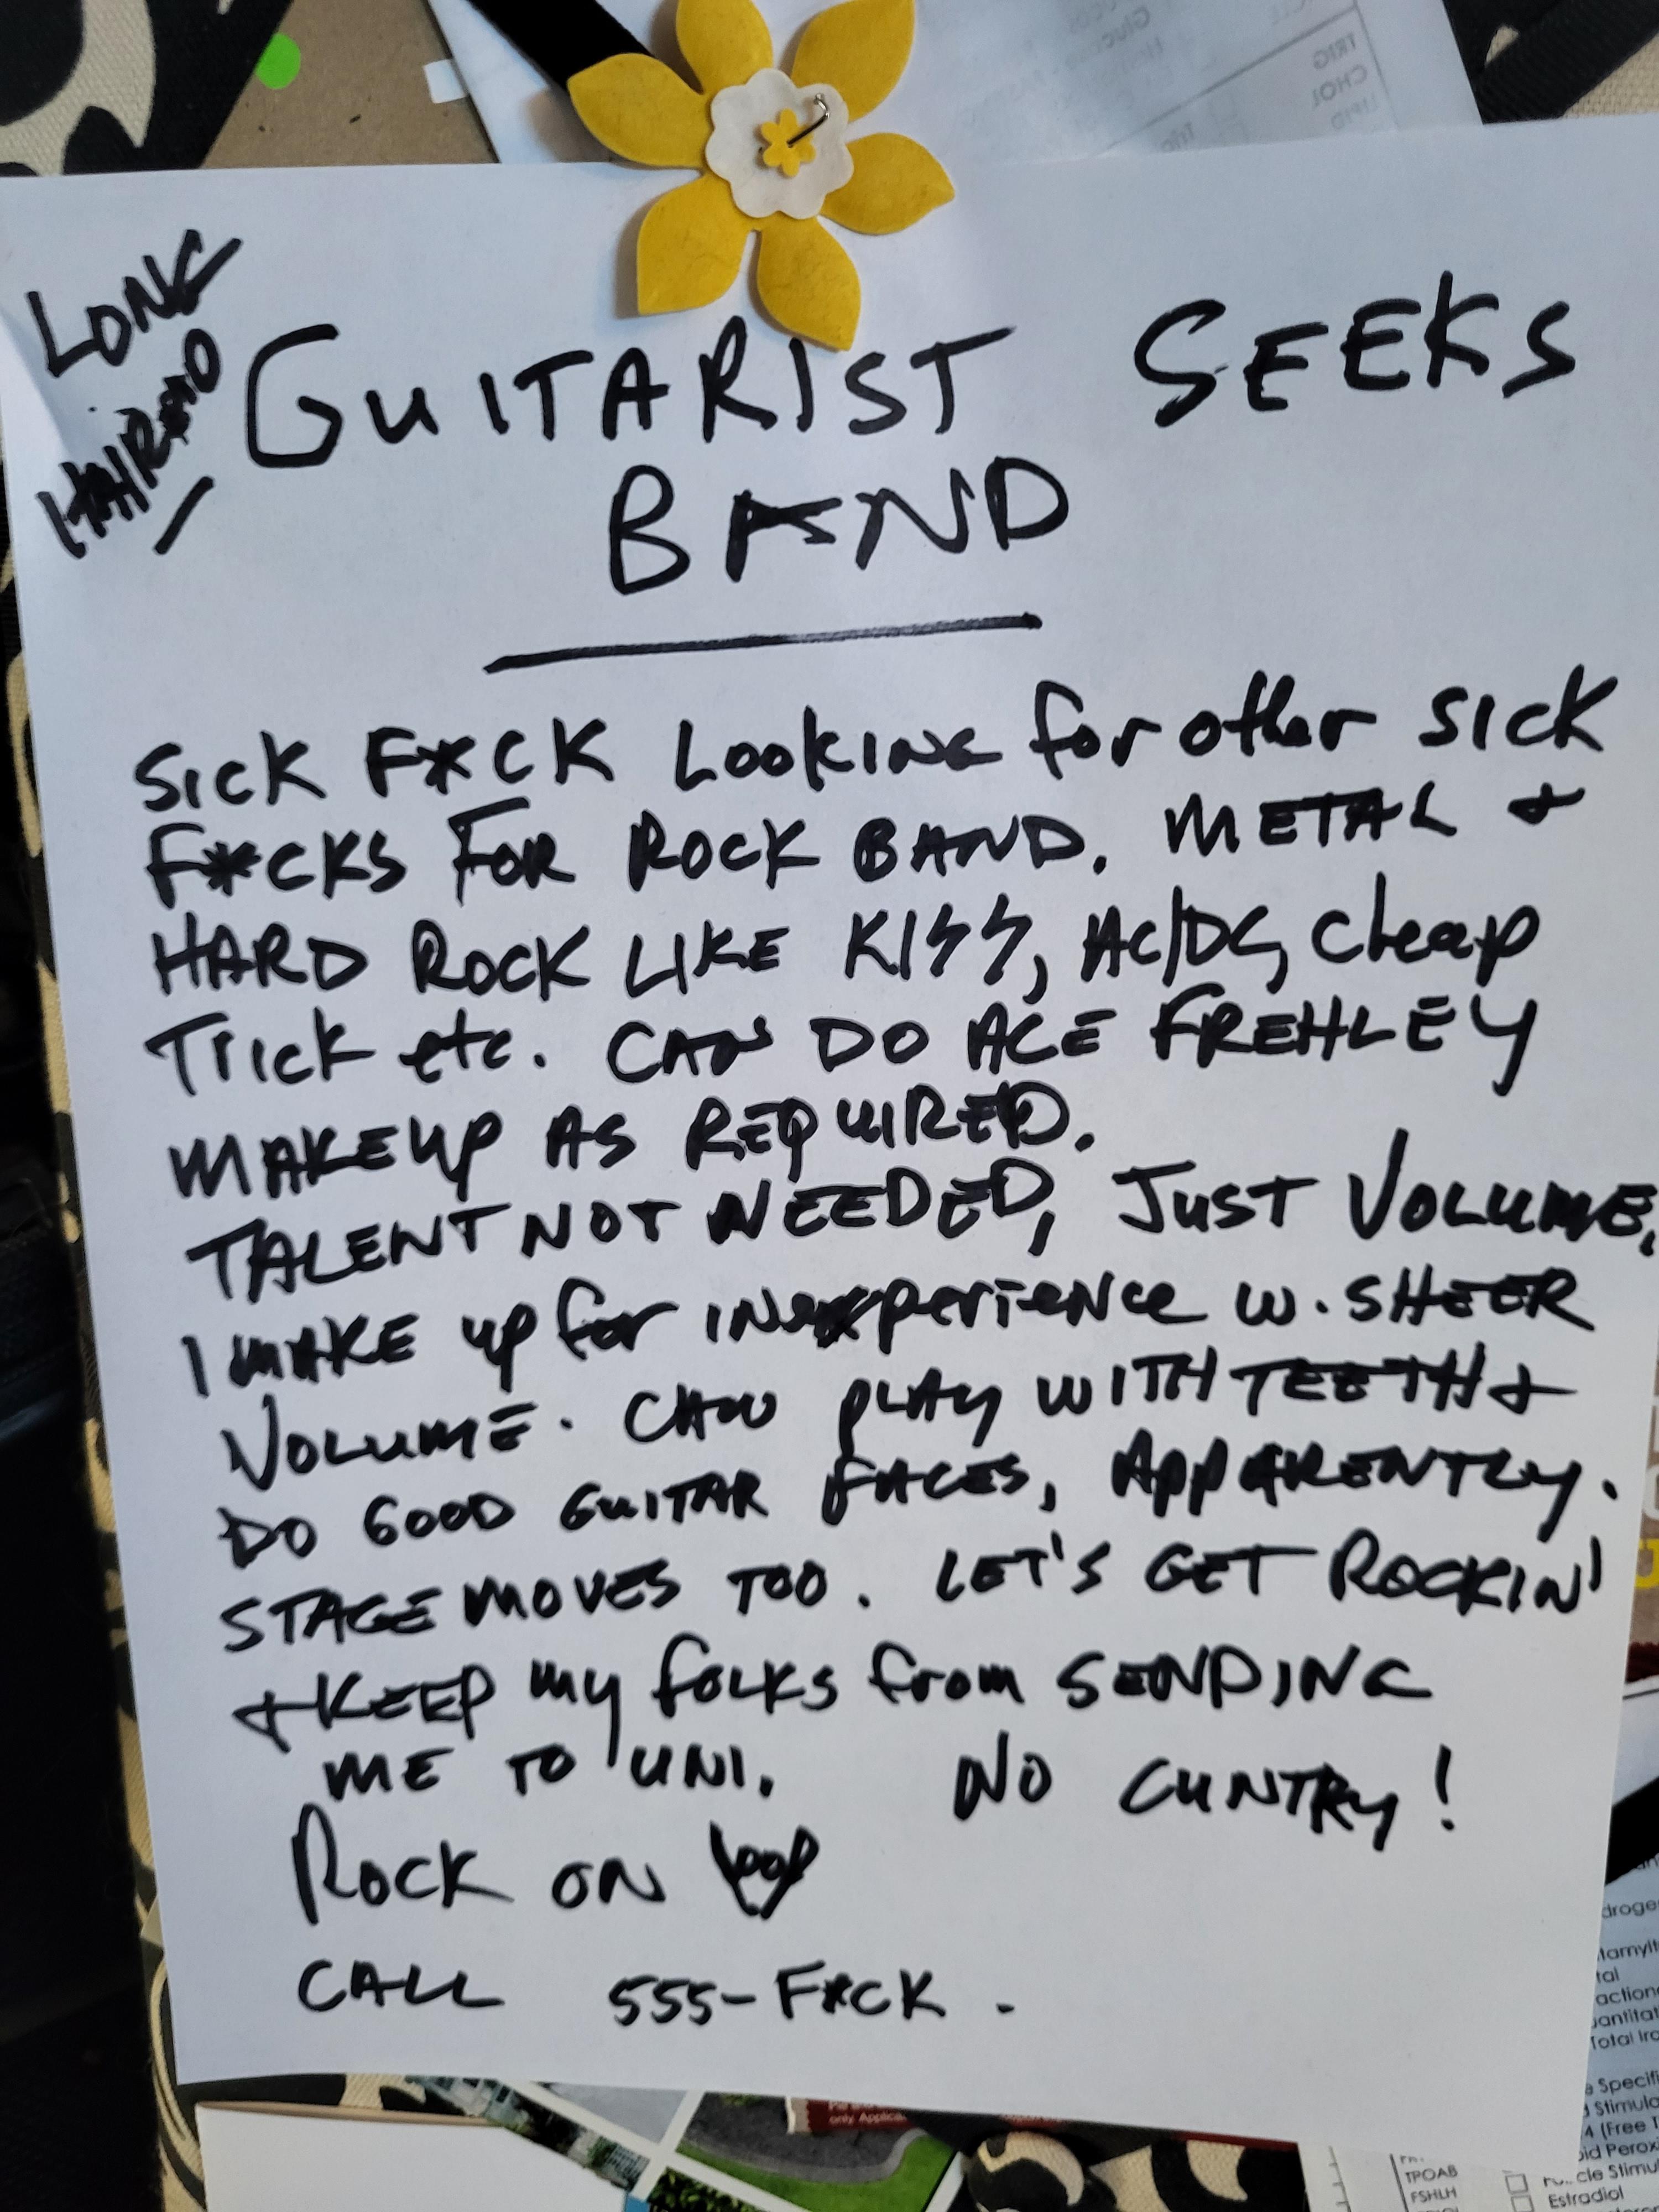 LONG
HAIRED
GUITARIST SEEKS
BAND
SICK F*CK LOOKING for other SICK
F*CKS FOR ROCK BAND. METAL +
HARD ROCK LIKE KISS, AC/DC, cheap
Trick etc. CAN DO ACE FREHLEY
MAKEUP AS REQUIRED.
TALENT NOT NEEDED, JUST VOLUME.
I MAKE up for INexperience w. SHEER
VOLUME. CAN PLAY WITH TEETH +
DO GOOD GUITAR FACES, APPARENTLY.
STAGE MOVES TOO. LET'S GET ROCKIN'
+ KEEP my folks from SENDING
ME TO UNI. NO CUNTRY!
ROCK ON
CALL 555-F*CK.
TRIG
CHOL
TPOAB
FSHLH
Estradiol